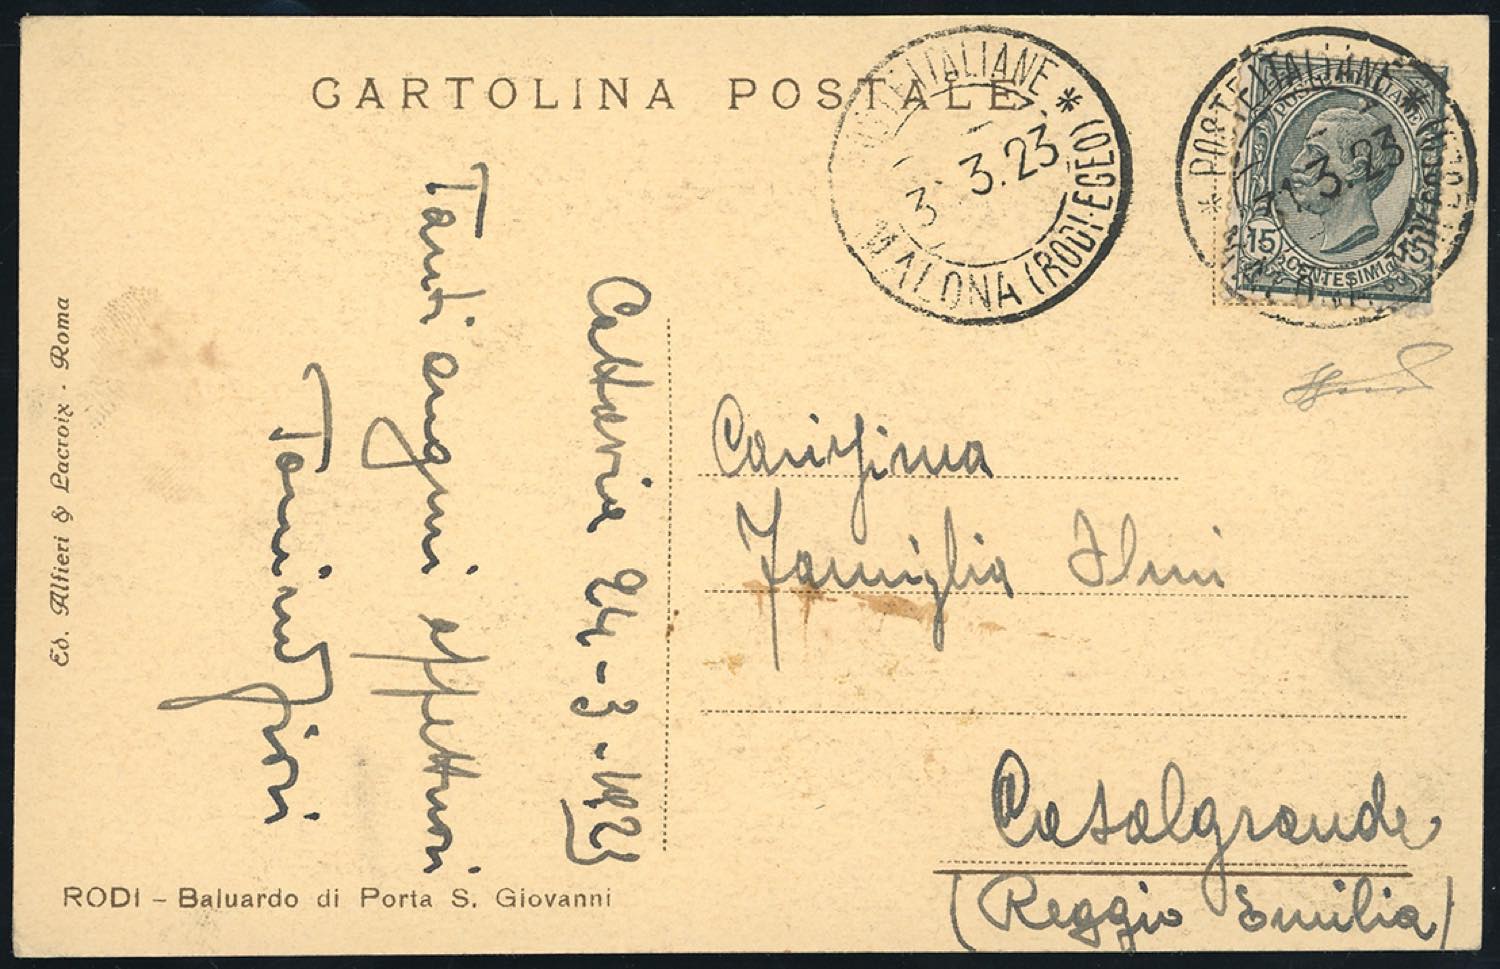 CARTOLINA POSTALE
POSTE ITALIANE *
3. 3.23
MALONA (RODI-EGEO)
* POSTE ITALIANE *
31.3.23
POSTE ITALIANE
15 CENTESIMI 15
Cattavia 24-3-1923
Tanti auguri affettuosi
Carissima
Famiglia
Casalgrande
(Reggio Emilia)
Ed. Alfieri & Lacroix - Roma
RODI - Baluardo di Porta S. Giovanni